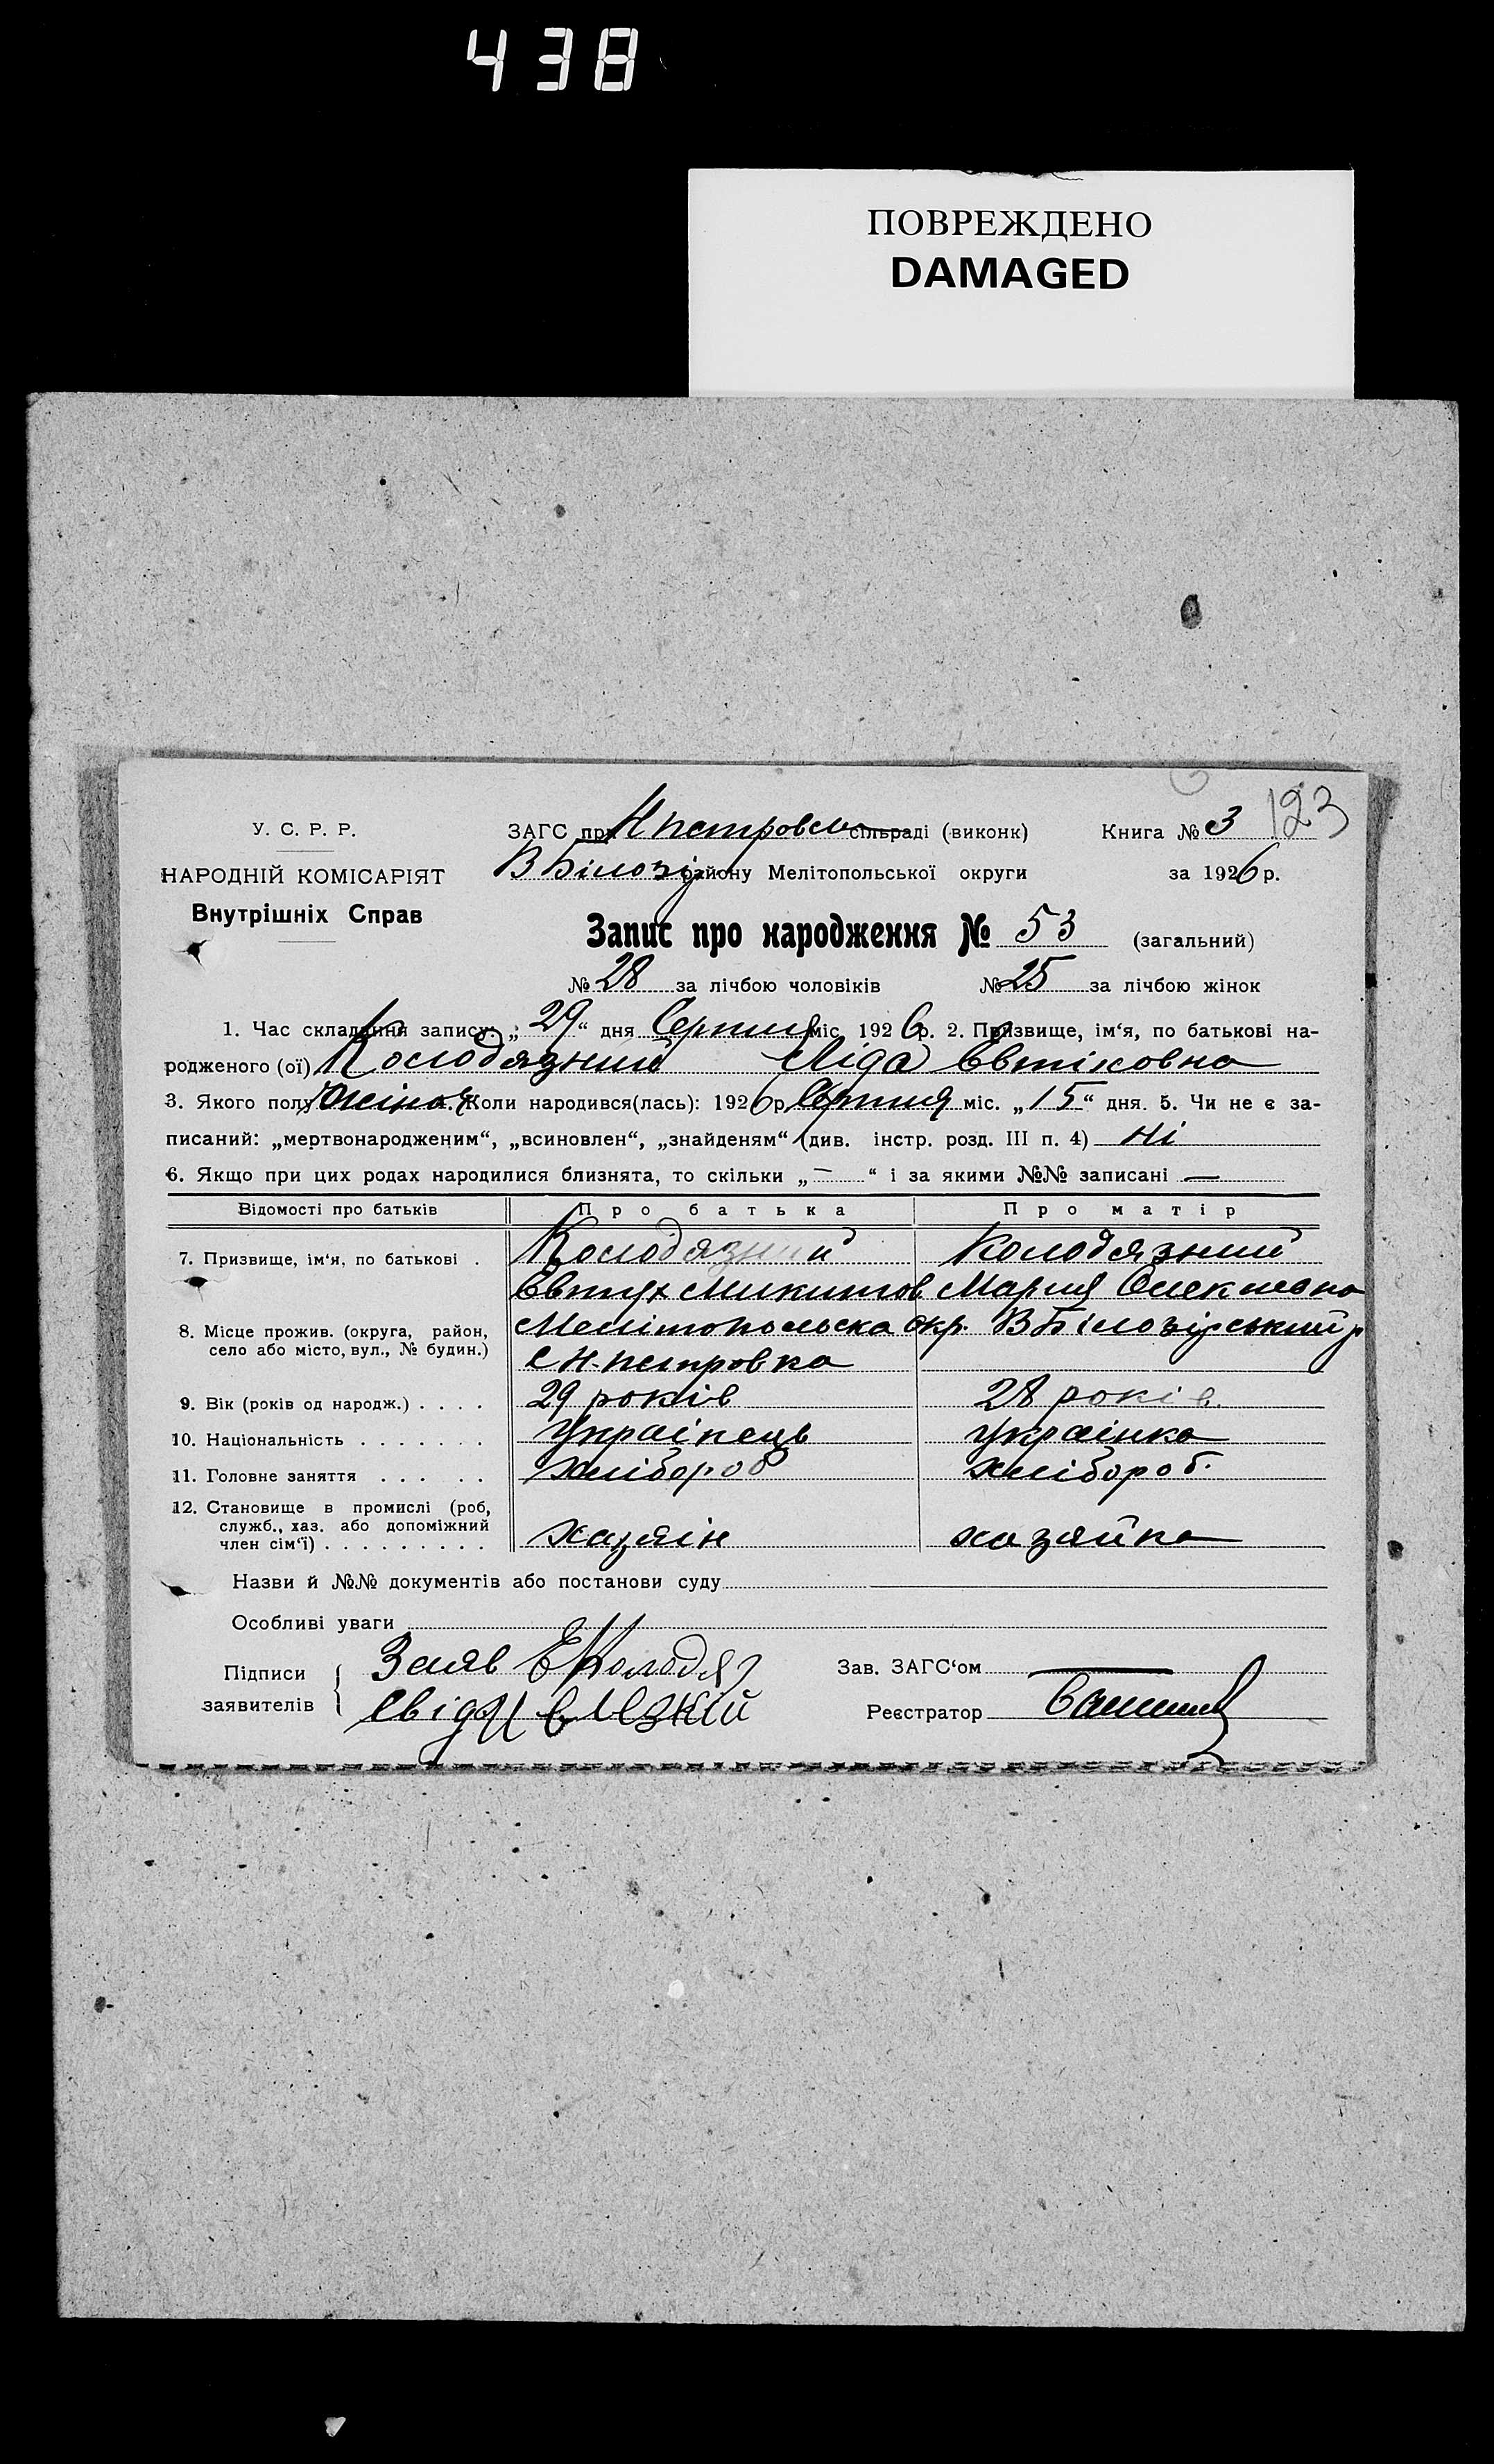 438
ПОВРЕЖДЕНО
DAMAGED
123
У. С. Р. Р.
НАРОДНІЙ КОМІСАРІЯТ
Внутрішніх Справ
ЗАГС при Н петровск сільраді (виконк) Книга № 3
В Білозір району Мелітопольської округи за 1926 р.
Запис про народження № 53 (загальний)
№ 28 за лічбою чоловіків № 25 за лічбою жінок
1. Час складання запису: „29“ дня Серпня міс. 1926 р. 2. Призвище, ім‘я, по батькові на-
родженого (ої) Колодязний Ліда Євтіховна
3. Якого полу Жіноч 4. Коли народився(лась): 1926 р. Серпня міс. „15“ дня. 5. Чи не є за-
писаний: „мертвонародженим“, „всиновлен“, „знайденям“ (див. інстр. розд. III п. 4) Ні
6. Якщо при цих родах народилися близнята, то скільки „—“ і за якими №№ записані —
Відомості про батьків Про батька Про матір
7. Призвище, ім‘я, по батькові . Колодязний Колодязний
Євтух Микитов Мария
8. Місце прожив. (округа, район, село або місто, вул., № будин.) Мелітопольска окр. В Білозірський р
с Н-петровка
9. Вік (років од народж.) . . . . 29 років 28 років.
10. Національність . . . . . . . Українець українка
11. Головне заняття . . . . . Хлібороб хлібороб.
12. Становище в промислі (роб,
служб., хаз. або допоміжний
член сім‘ї) . . . . . . . . . хазяін хазяйка
Назви й №№ документів або постанови суду
Особливі уваги
Підписи заявителів Заяв ЕКолодяз Зав. ЗАГС‘ом —
Свід Реєстратор